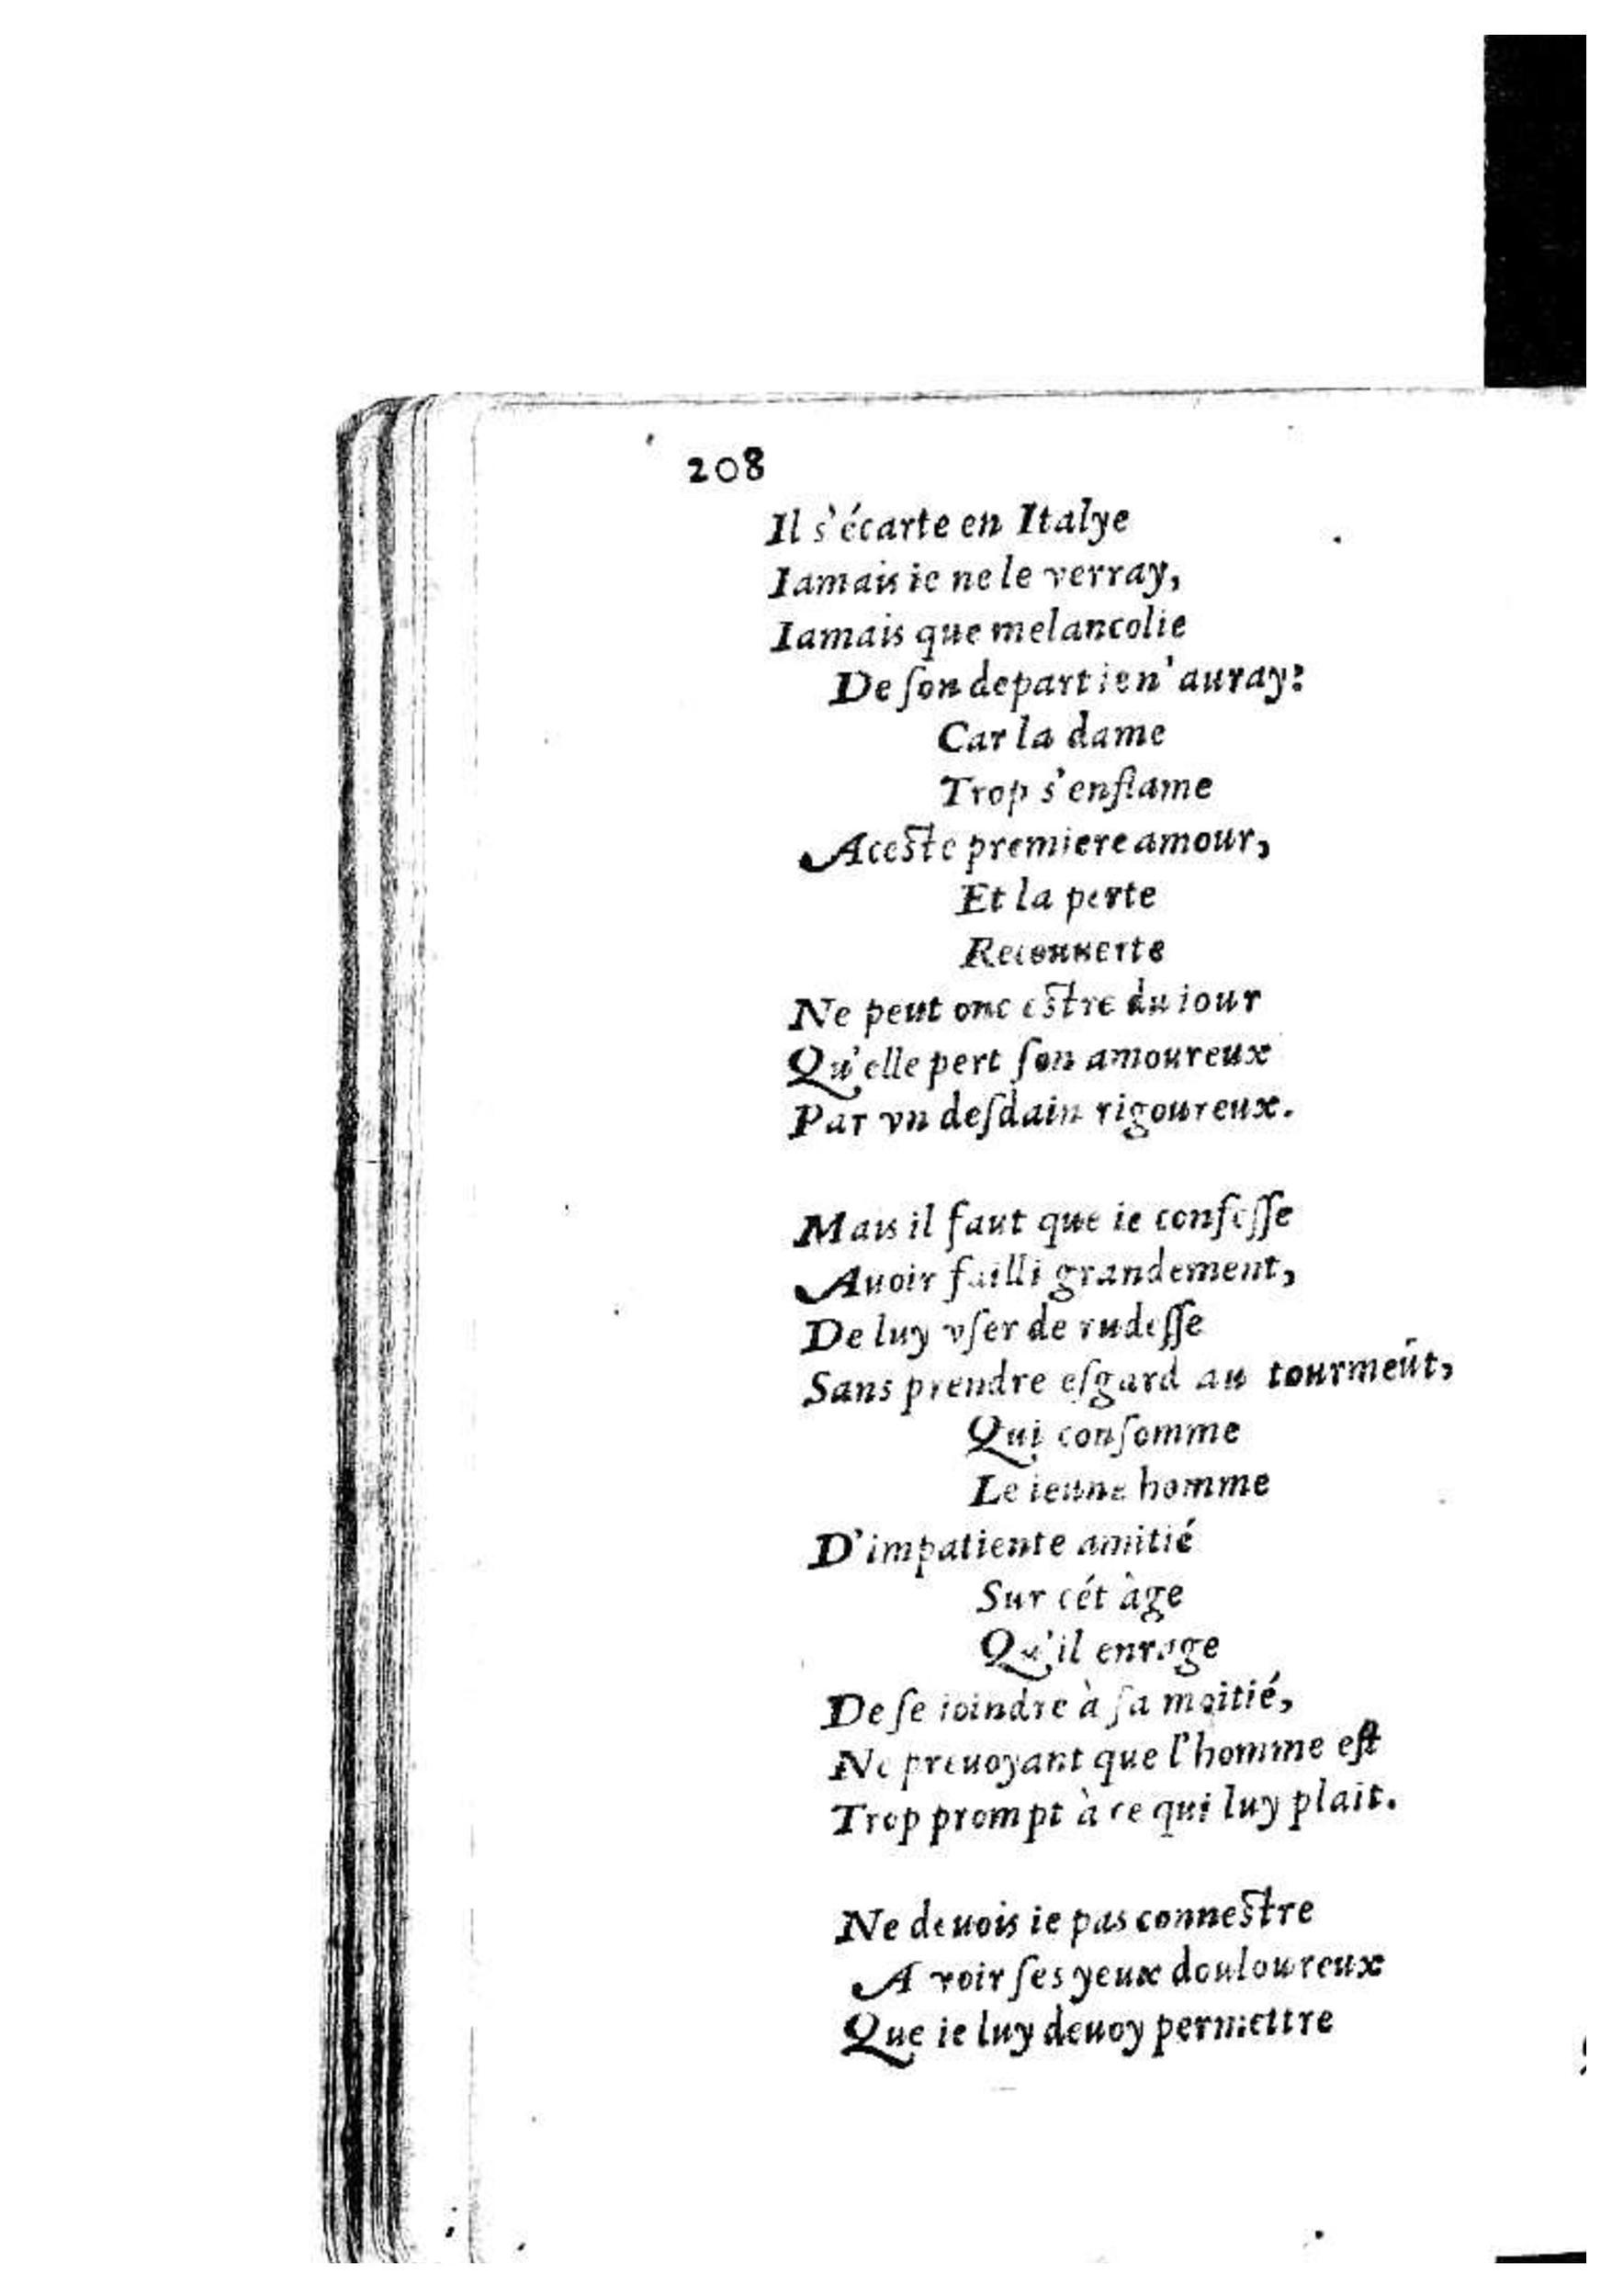 208
Il s'écarte en Italye
Iamais ie ne le verray,
Iamais que melancolie
De ſon depart ie n'auray:
Car la dame
Trop s'enflame
A ceste premiere amour,
Et la perte
Recouuerte
Ne peut onc estre du iour
Qu'elle pert ſon amoureux
Par vn deſdain rigoureux.
Mais il faut que ie confeſſe
Auoir failli grandement,
De luy vſer de rudeſſe
Sans prendre eſgard au tourmẽt,
Qui conſomme
Le ieune homme
D'impatiente amitié
Sur cét àge
Qu'il enrage
De ſe ioindre à ſa moitié,
Ne preuoyant que l'homme eſt
Trop prompt à ce qui luy plait.
Ne deuois ie pas connestre
A voir ſes yeux douloureux
Que ie luy deuoy permettre